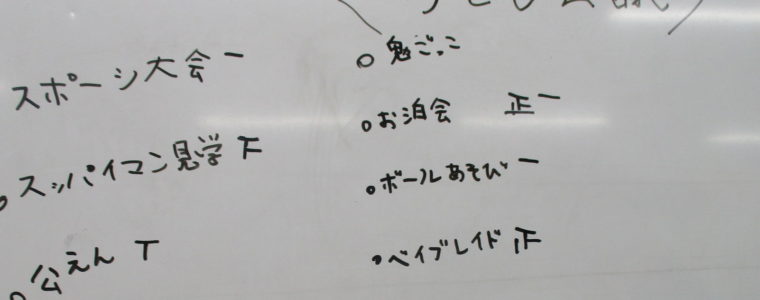 スポーシ大会 一
スッパイマン見学 下
公えん T
鬼ごっこ
お泊会 正一
ボールあそび 一
ベイブレイド 正